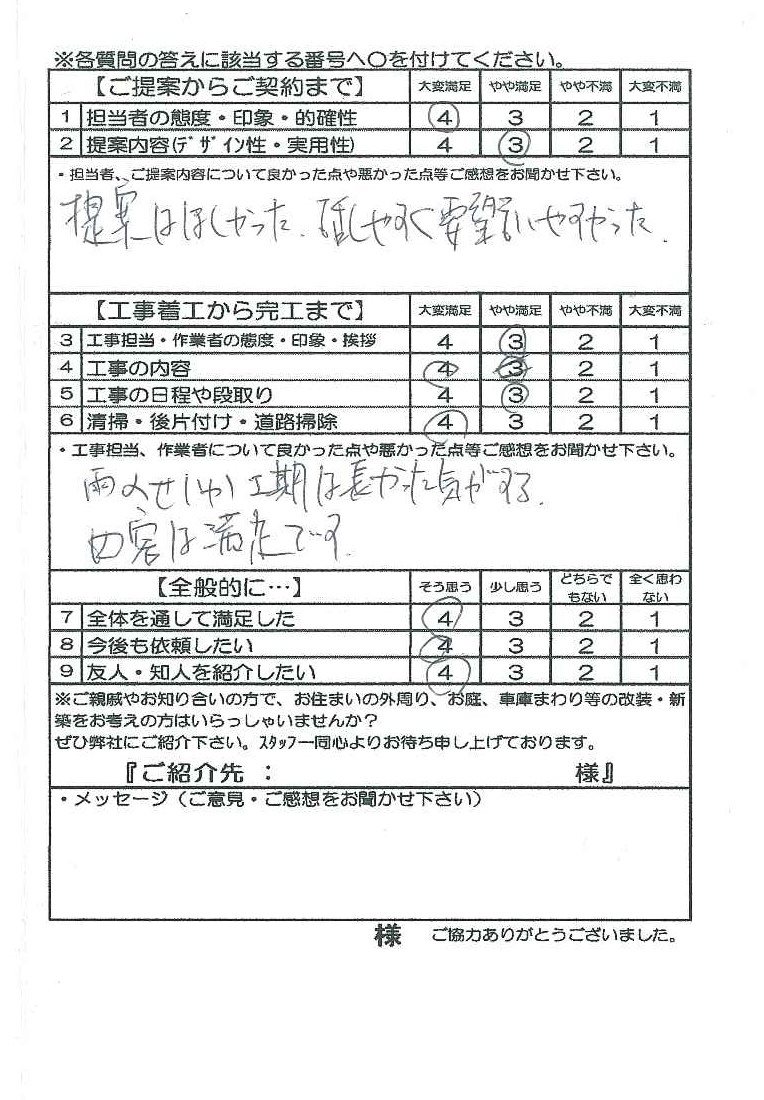 ※各質問の答えに該当する番号へ〇を付けてください。
【ご提案からご契約まで】 大変満足 やや満足 やや不満 大変不満
1 担当者の態度・印象・的確性 4 3 2 1
2 提案内容(ﾃﾞｻﾞｲﾝ性・実用性) 4 3 2 1
・担当者、ご提案内容について良かった点や悪かった点等ご感想をお聞かせ下さい。
提案はほしかった、話しやすく要望言いやすかった。
【工事着工から完工まで】 大変満足 やや満足 やや不満 大変不満
3 工事担当・作業者の態度・印象・挨拶 4 3 2 1
4 工事の内容 4 3 2 1
5 工事の日程や段取り 4 3 2 1
6 清掃・後片付け・道路掃除 4 3 2 1
・工事担当、作業者について良かった点や悪かった点等ご感想をお聞かせ下さい。
雨のせいか工期は長かった気がする。
内容は満足です。
【全般的に…】 そう思う 少し思う どちらでもない 全く思わない
7 全体を通して満足した 4 3 2 1
8 今後も依頼したい 4 3 2 1
9 友人・知人を紹介したい 4 3 2 1
※ご親戚やお知り合いの方で、お住まいの外周り、お庭、車庫まわり等の改装・新
築をお考えの方はいらっしゃいませんか？
ぜひ弊社にご紹介下さい。ｽﾀｯﾌ一同心よりお待ち申し上げております。
『ご紹介先： 様』
・メッセージ（ご意見・ご感想をお聞かせ下さい）
様 ご協力ありがとうございました。